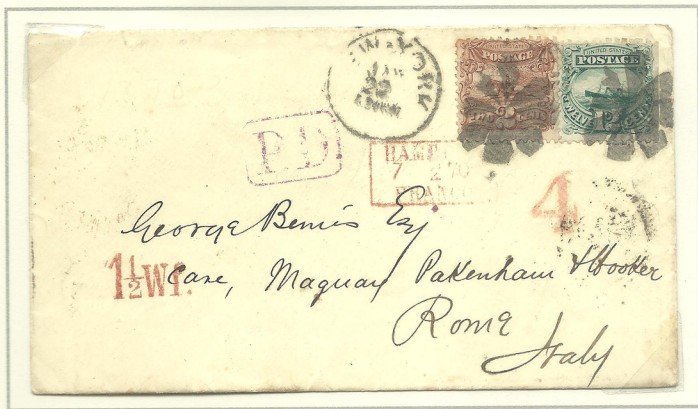 NEW YORK
JAN
25
UNITED STATES
POSTAGE
TWO 2 CENTS
UNITED STATES
POSTAGE
TWELVE 12 CENTS
P.D
HAMB
7 2 70
FRANCO
4
George Bemis Esq
1½Wf.
Care, Maquay Pakenham & Hooker
Rome
Italy